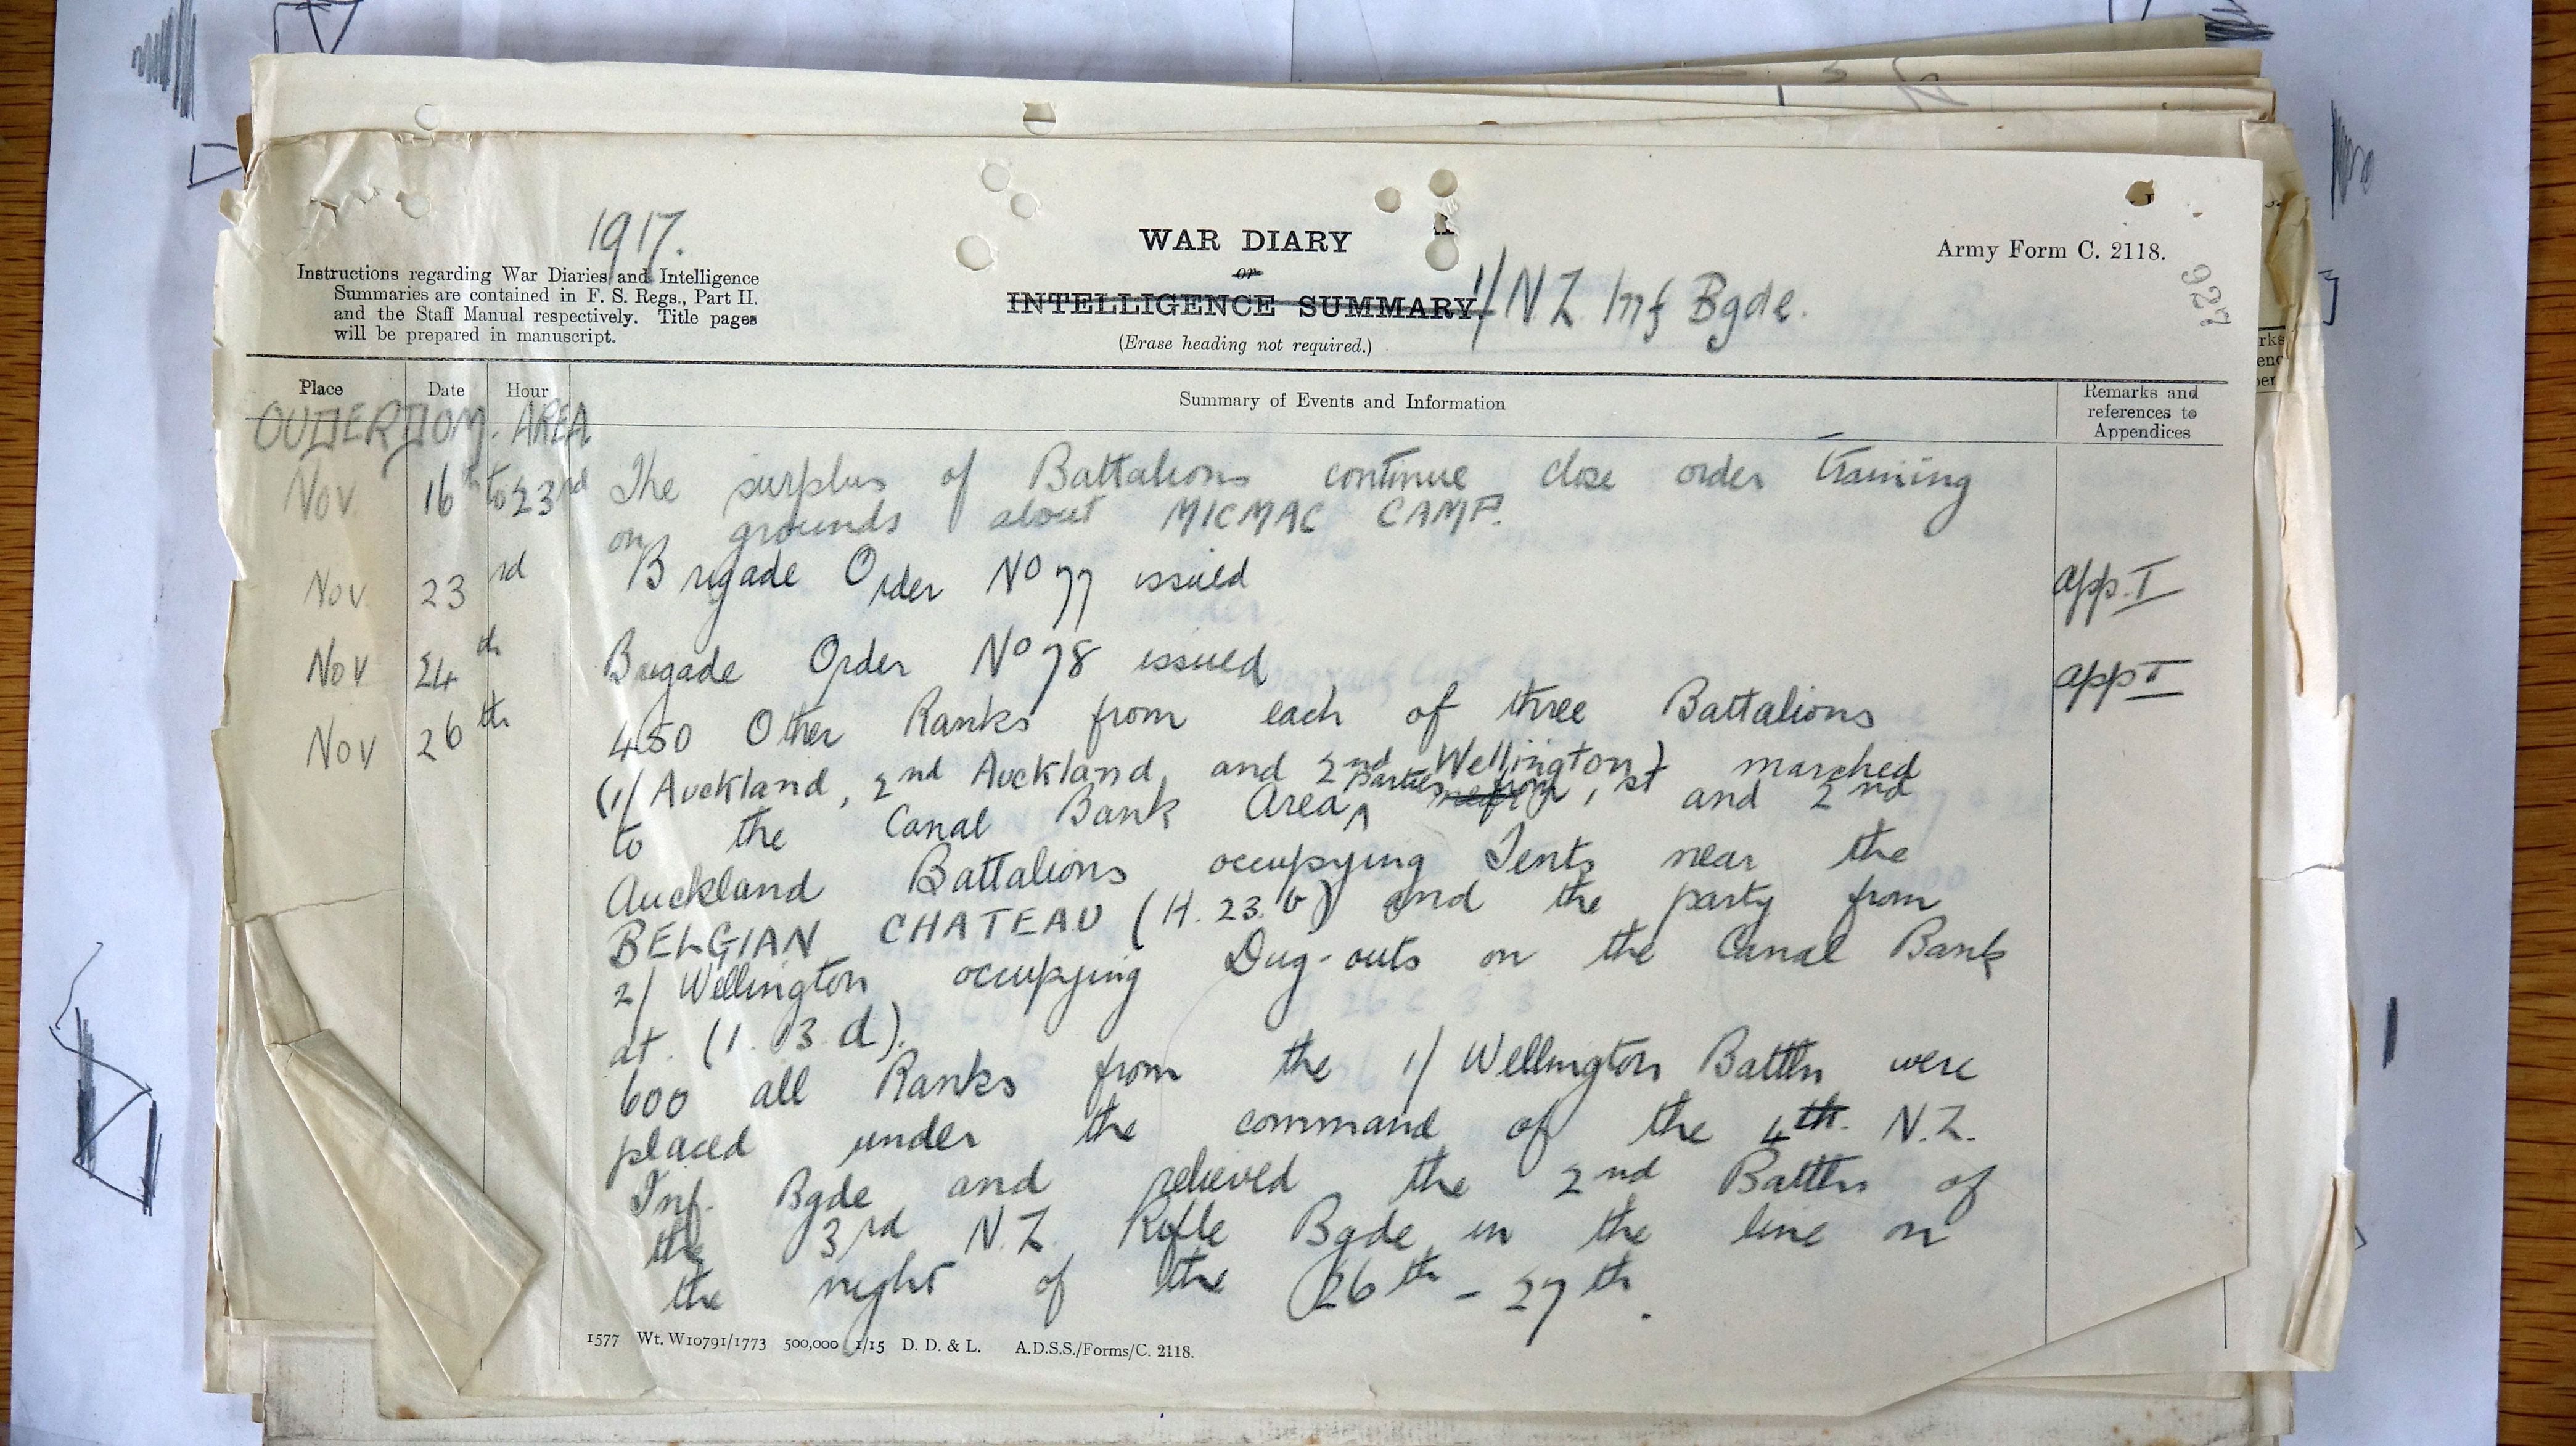 1917.
WAR DIARY
or
INTELLIGENCE SUMMARY.
(Erase heading not required.)
1/ N Z. Inf Bgde.
Army Form C. 2118.
927
Instructions regarding War Diaries and Intelligence
Summaries are contained in F. S. Regs., Part II.
and the Staff Manual respectively. Title pages
will be prepared in manuscript.
Place Date Hour Summary of Events and Information Remarks and
references to
Appendices
OUDERDOM. AREA
Nov. 16th to 23rd The surplus of Battalions continue close order training
on grounds about MICMAC CAMP.
Nov 23rd Brigade Order No 77 issued app. I
Nov 24th Brigade Order No 78 issued app I
Nov 26th 450 Other Ranks from each of three Battalions
(1/ Auckland, 2nd Auckland, and 2nd Wellington) marched
to the Canal Bank Area, parties from 1st and 2nd
Auckland Battalions occupying Tents near the
BELGIAN CHATEAU (H. 23. b) and the party from
2/ Wellington occupying Dug-outs on the Canal Bank
at. (I. 13. d).
600 all Ranks from the 1/ Wellington Battln were
placed under the command of the 4th. N.Z.
Inf. Bgde and relieved the 2nd Battln of
the 3rd N.Z. Rifle Bgde in the line on
the night of the 26th - 27th.
1577 Wt. W10791/1773 500,000 1/15 D. D. & L. A.D.S.S./Forms/C. 2118.